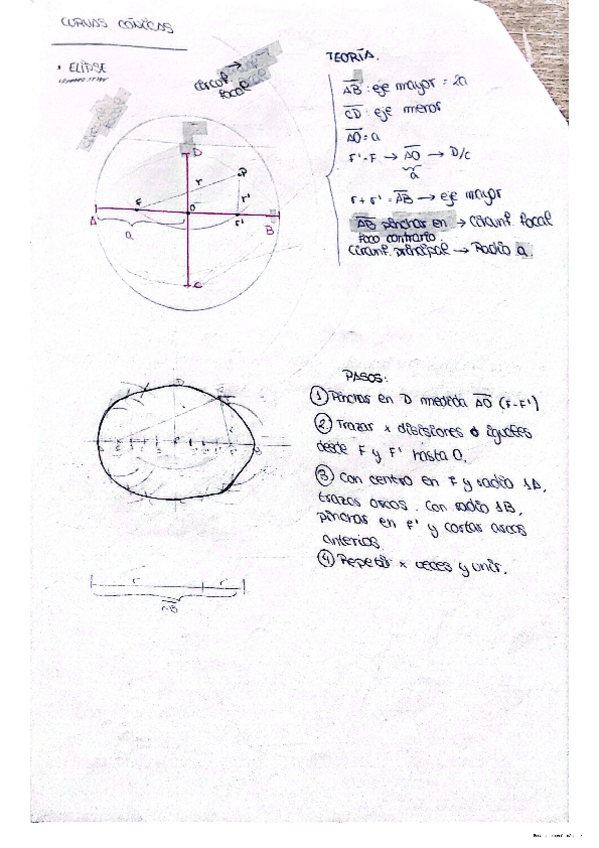 CURVAS CÓNICAS
• ELIPSE
circunf. focal
TEORÍA.
AB: eje mayor = 2a
CD: eje menor
AO = a
F'-F → AO → D/C
a
r + r' = AB → eje mayor
AB pinchas en → Circunf. focal
foco contrario.
Circunf. principal → Radio a.
D
P
r
r'
A
F
O
F'
B
a
C
PASOS:
① Pinchas en D medida AO (F-F')
② Trazar x divisiones iguales
desde F y F' hasta O.
③ Con centro en F y radio 1A,
trazas arcos. Con radio 1B,
pinchas en F' y cortas arcos
anteriores.
④ Repetir x veces y unir.
r
r'
AB